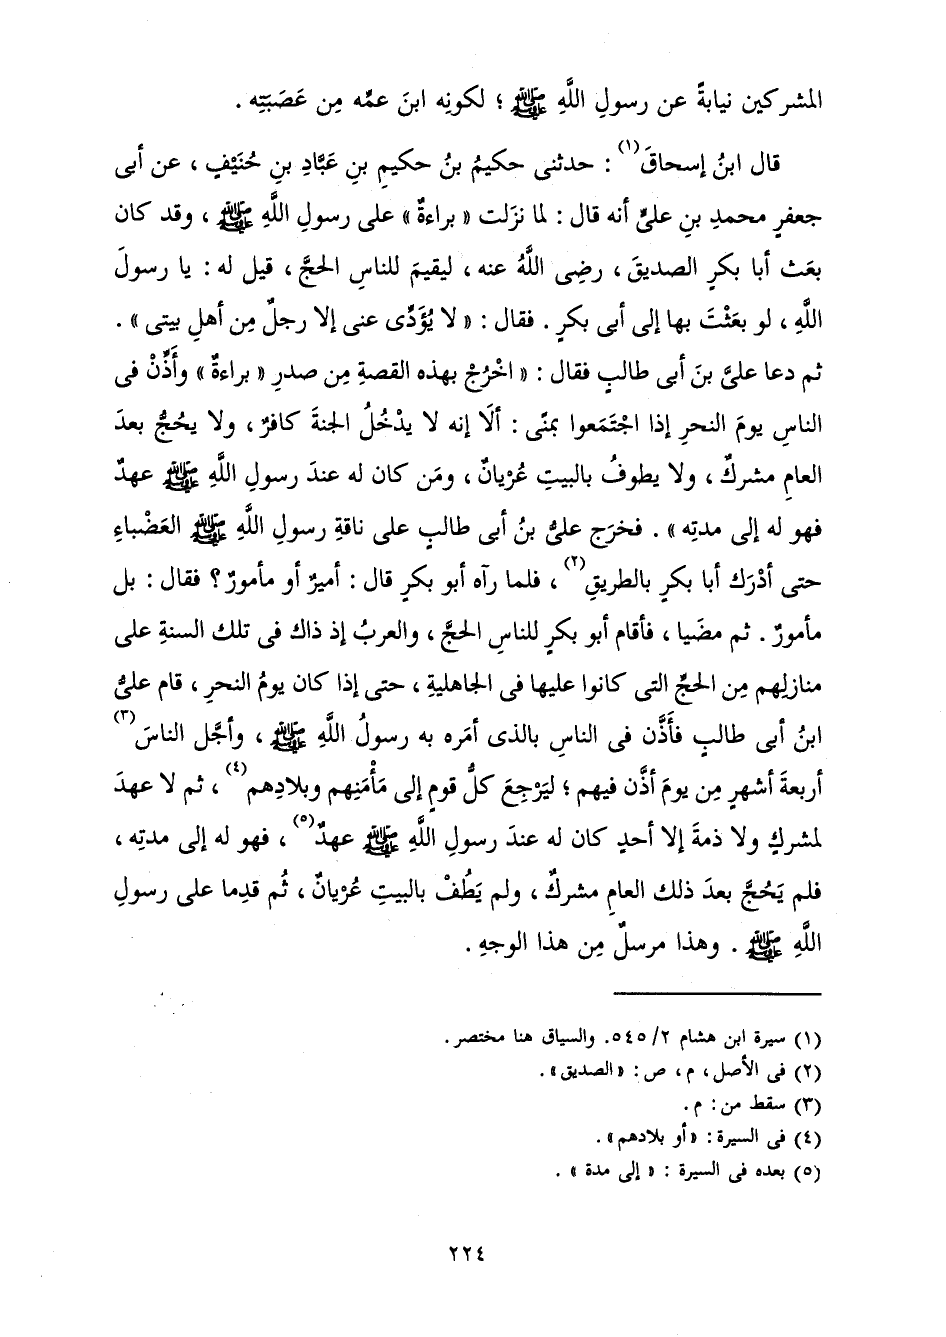 المشركين نيابةً عن رسولِ اللَّهِ ﷺ ؛ لكونِه ابنَ عمِّه مِن عَصَبَتِه .
قال ابنُ إسحاقَ(١) : حدثنى حكيمُ بنُ حكيمِ بنِ عَبَّادِ بنِ حُنَيْفٍ ، عن أبى
جعفرٍ محمدِ بنِ علىٍّ أنه قال : لما نزَلت « براءةٌ » على رسولِ اللَّهِ ﷺ ، وقد كان
بعَث أبا بكرٍ الصديقَ ، رضِى اللَّهُ عنه ، ليقيمَ للناسِ الحجَّ ، قيل له : يا رسولَ
اللَّهِ ، لو بعَثْتَ بها إلى أبى بكرٍ . فقال : « لا يُؤَدِّى عنى إلا رجلٌ مِن أهلِ بيتى » .
ثم دعا علىَّ بنَ أبى طالبٍ فقال : « اخْرُجْ بهذه القصةِ مِن صدرِ « براءةٌ » وأَذِّنْ فى
الناسِ يومَ النحرِ إذا اجْتَمَعوا بمنًى : ألَا إنه لا يدْخُلُ الجنةَ كافرٌ ، ولا يحُجُّ بعدَ
العامِ مشركٌ ، ولا يطوفُ بالبيتِ عُرْيانٌ ، ومَن كان له عندَ رسولِ اللَّهِ ﷺ عهدٌ
فهو له إلى مدتِه » . فخرَج علىُّ بنُ أبى طالبٍ على ناقةِ رسولِ اللَّهِ ﷺ العَضْباءِ
حتى أدْرَك أبا بكرٍ بالطريقِ(٢) ، فلما رآه أبو بكرٍ قال : أميرٌ أو مأمورٌ ؟ فقال : بل
مأمورٌ . ثم مضَيا ، فأقام أبو بكرٍ للناسِ الحجَّ ، والعربُ إذ ذاك فى تلك السنةِ على
منازلِهم مِن الحجِّ التى كانوا عليها فى الجاهليةِ ، حتى إذا كان يومُ النحرِ ، قام علىُّ
ابنُ أبى طالبٍ فأَذَّن فى الناسِ بالذى أمَره به رسولُ اللَّهِ ﷺ ، وأجَّل الناسَ(٣)
أربعةَ أشهرٍ مِن يومَ أذَّن فيهم ؛ ليَرْجِعَ كلُّ قومٍ إلى مَأْمَنِهم وبلادِهم(٤) ، ثم لا عهدَ
لمشركٍ ولا ذمةَ إلا أحدٍ كان له عندَ رسولِ اللَّهِ ﷺ عهدٌ(٥) ، فهو له إلى مدتِه ،
فلم يَحُجَّ بعدَ ذلك العامِ مشركٌ ، ولم يَطُفْ بالبيتِ عُرْيانٌ ، ثُم قدِما على رسولِ
اللَّهِ ﷺ . وهذا مرسلٌ مِن هذا الوجهِ .
(١) سيرة ابن هشام ٢/ ٥٤٥. والسياق هنا مختصر .
(٢) فى الأصل، م، ص : «الصديق» .
(٣) سقط من : م .
(٤) فى السيرة : «أو بلادهم» .
(٥) بعده فى السيرة : « إلى مدة » .
٢٢٤